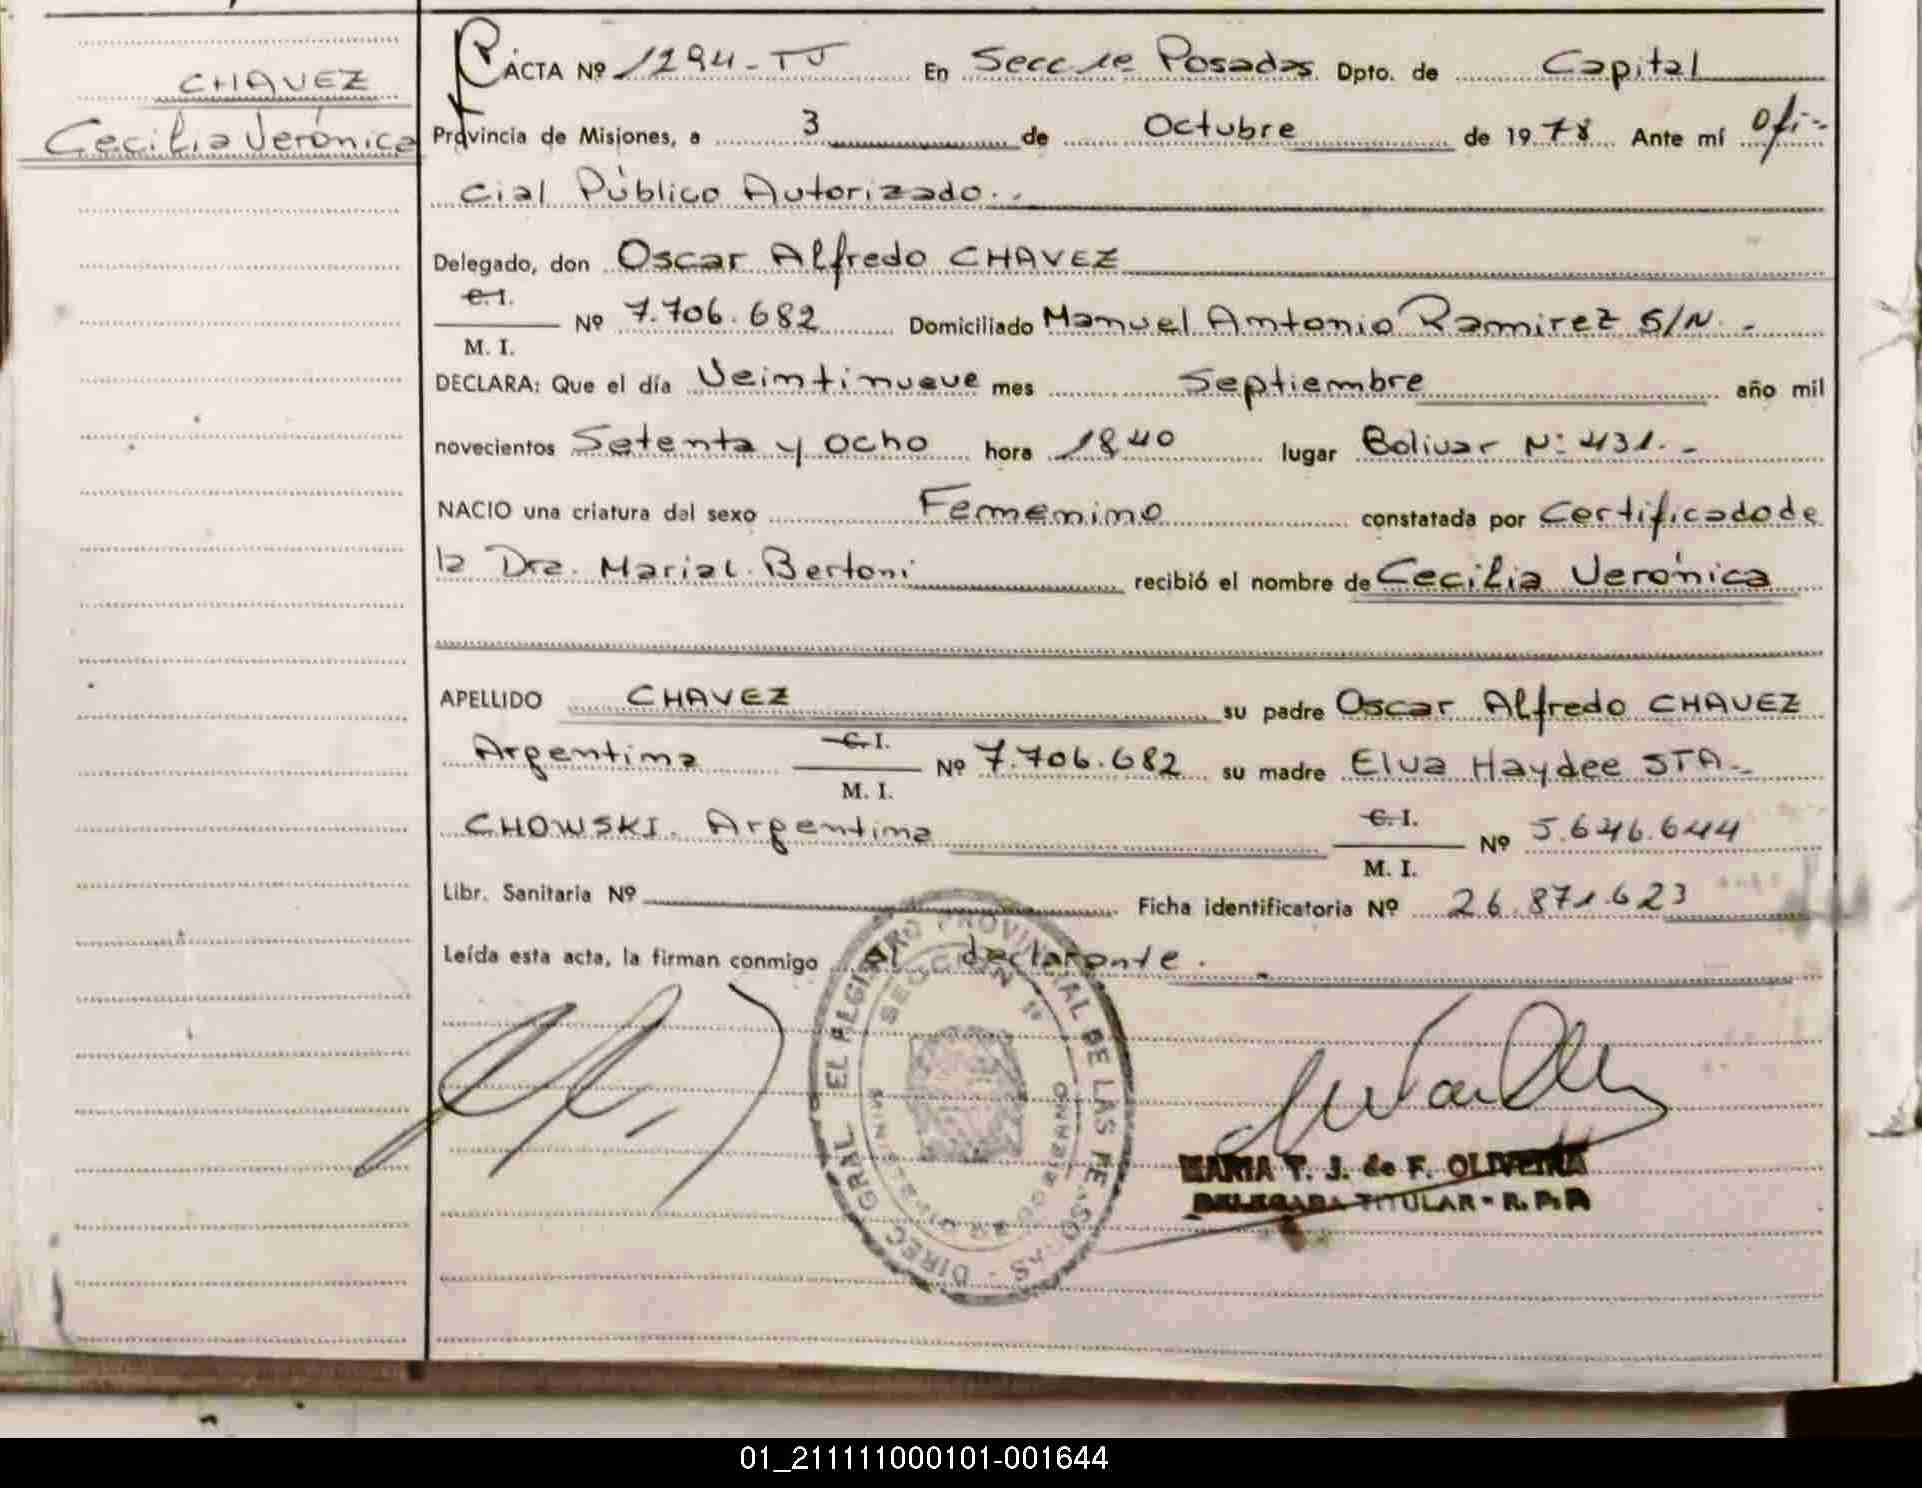 CHAVEZ
Cecilia Verónica
ACTA Nº 1294-TJ En Secc 1e Posadas Dpto. de Capital
Provincia de Misiones, a 3 de Octubre de 1978 Ante mí Ofi-
cial Público Autorizado.-
Delegado, don Oscar Alfredo CHAVEZ
C. I.
M. I. Nº 7.706.682 Domiciliado Manuel Antonio Ramirez S/N.-
DECLARA: Que el día Veintinueve mes Septiembre año mil
novecientos Setenta y Ocho hora 1840 lugar Bolivar Nº 431.-
NACIO una criatura del sexo Femenino constatada por Certificado de
la Dra. Maria L. Bertoni recibió el nombre de Cecilia Verónica
APELLIDO CHAVEZ su padre Oscar Alfredo CHAVEZ
Argentina C. I. M. I. Nº 7.706.682 su madre Elva Haydee STA-
CHOWSKI. Argentina C. I. M. I. Nº 5.646.644
Libr. Sanitaria Nº Ficha identificatoria Nº 26.871.623
Leída esta acta, la firman conmigo el declarante.-
DIREC. GRAL. DEL REGISTRO PROVINCIAL DE LAS PERSONAS
SECCION 1º
MARIA T. J. de F. OLIVEIRA
DELEGADA TITULAR - R. P. P.
01_211111000101-001644